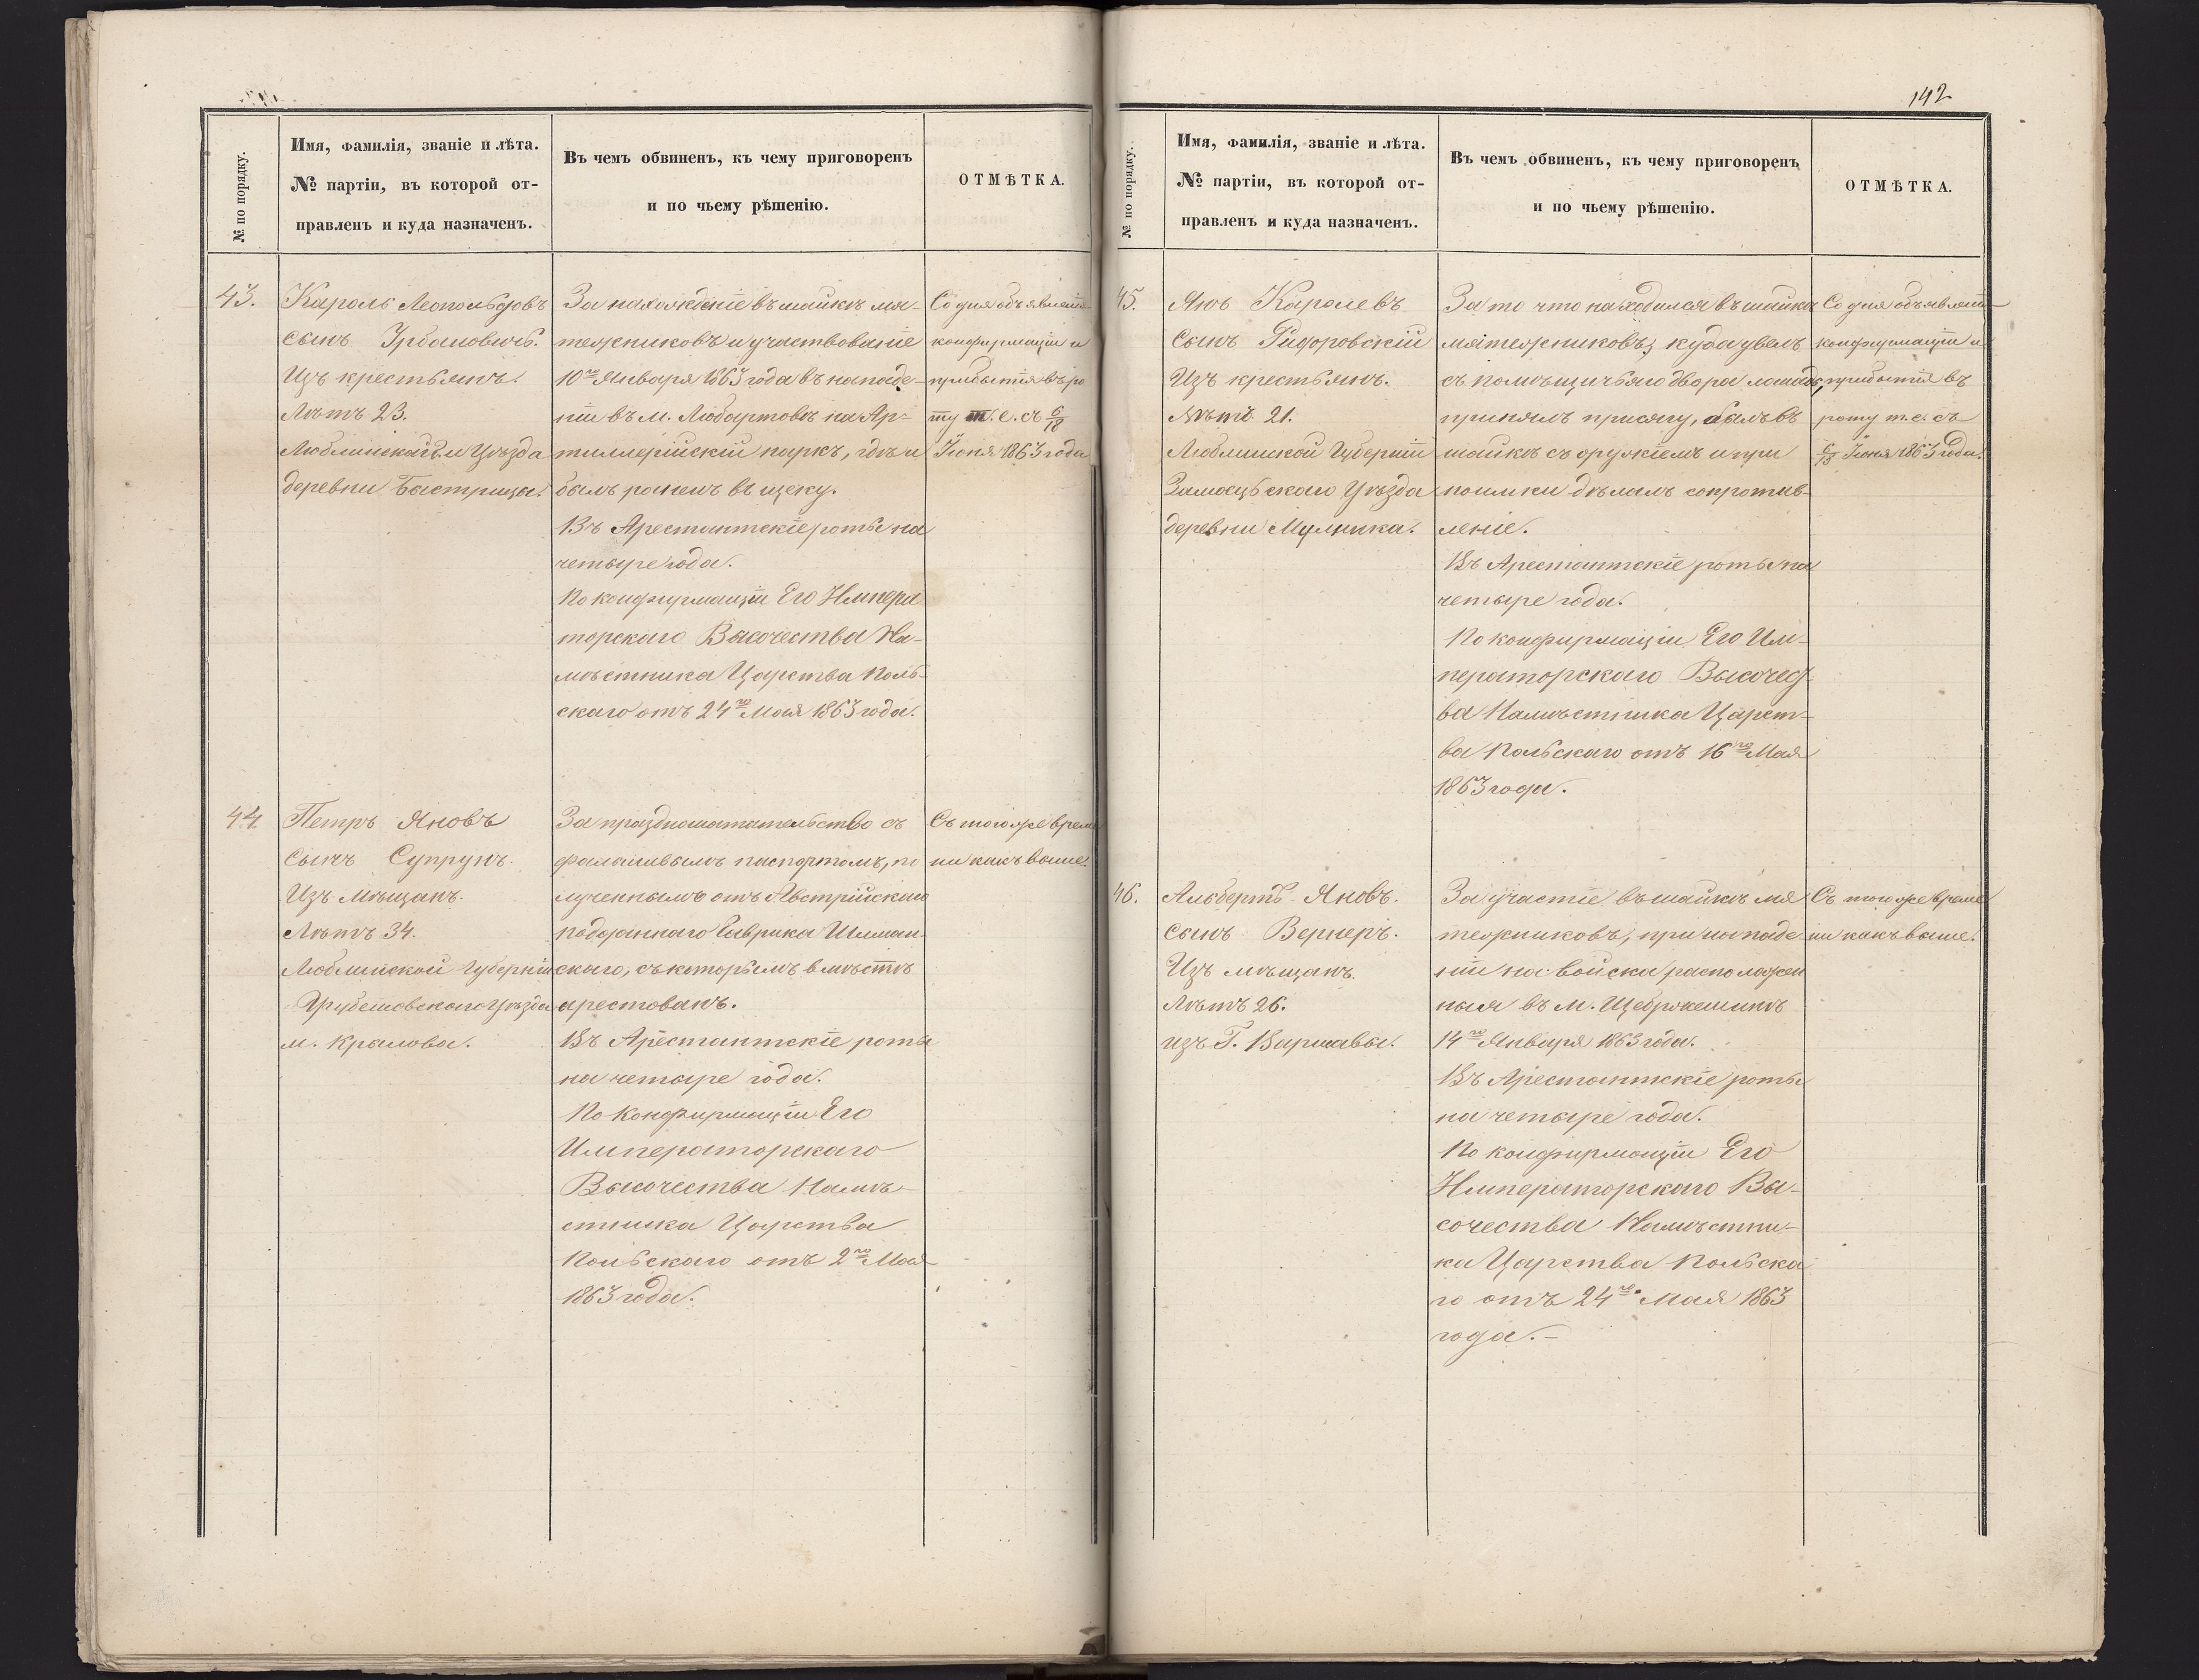 № по порядку.
Имя, фамилія, званіе и лѣта.
№ партіи, въ которой от-
правленъ и куда назначенъ.
Въ чемъ обвиненъ, къ чему приговоренъ
и по чьему рѣшенію.
ОТМѢТКА.
43.
Кароль Леопольдовъ
сынъ Урбановичъ.
Изъ крестьянъ.
Лѣтъ 23.
Люблинскаго Уѣзда
деревни Быстрица.
За нахожденіе въ шайкѣ мя-
тежниковъ и участвованіе
10го Января 1863 года въ нападе-
ніи въ м. Любартовѣ на Ар-
тиллерійскій паркъ, гдѣ и
былъ раненъ въ щеку.
Въ Арестантскіе роты на
четыре года.
По конфирмаціи Его Импера
торскаго Высочества На-
мѣстника Царства Поль-
скаго отъ 24го Мая 1863 года.
Со дня объявленія
конфирмаціи и
прибытія въ ро
ту т. е. съ 6/18
Іюня 1863 года
44.
Петръ Яновъ
сынъ Супрунъ.
Изъ мѣщанъ.
Лѣтъ 34.
Люблинской Губерніи
Грубешовскаго Уѣзда
м. Крылова.
За праздношатательство съ
фальшивымъ паспортомъ, по
лученнымъ отъ Австрійскаго
подданнаго Гаврика Шиман
скаго, съ которымъ вмѣстѣ
арестованъ.
Въ Арестантскіе роты
на четыре года.
По Конфирмаціи Его
Императорскаго
Высочества Намѣ-
стника Царства
Польскаго отъ 2го Мая
1863 года.
Съ того же време
ни какъ выше.
142
№ по порядку.
Имя, фамилія, званіе и лѣта.
№ партіи, въ которой от-
правленъ и куда назначенъ.
Въ чемъ обвиненъ, къ чему приговоренъ
и по чьему рѣшенію.
ОТМѢТКА.
45.
Янъ Каролевъ
Сынъ Сидоровскій
Изъ крестьянъ.
Лѣтъ 21.
Люблинской Губерніи
Замосцьскаго Уѣзда
деревни
За то что находился въ шайкѣ
мятежниковъ, куда увелъ
съ помѣщичьяго двора лошадь,
принялъ присягу, былъ въ
шайкѣ съ оружіемъ и при
поимки дѣлалъ сопротив-
леніе.
Въ Арестантскіе роты на
четыре года.
По конфирмаціи Его Им-
ператорскаго Высочест
ва Намѣстника Царст-
ва Польскаго отъ 16го Мая
1863 года.
Со дня объявленія
конфирмаціи и
прибытія въ
роту т. е. съ
6/18 Іюня 1863 года.
46.
Альбертъ Яновъ.
Сынъ Вернеръ.
Изъ мѣщанъ.
Лѣтъ 26.
изъ Г. Варшавы.
За участіе въ шайкѣ мя
тежниковъ, при нападе-
ніи на войска расположен
ныя въ м. Щебржешинѣ
14го Января 1863 года.
Въ Арестантскіе роты
на четыре года.
По конфирмаціи Его
Императорскаго Вы-
сочества Намѣстни-
ка Царства Польска
го отъ 24го Мая 1863
года.-
Съ того же време
ни какъ выше.